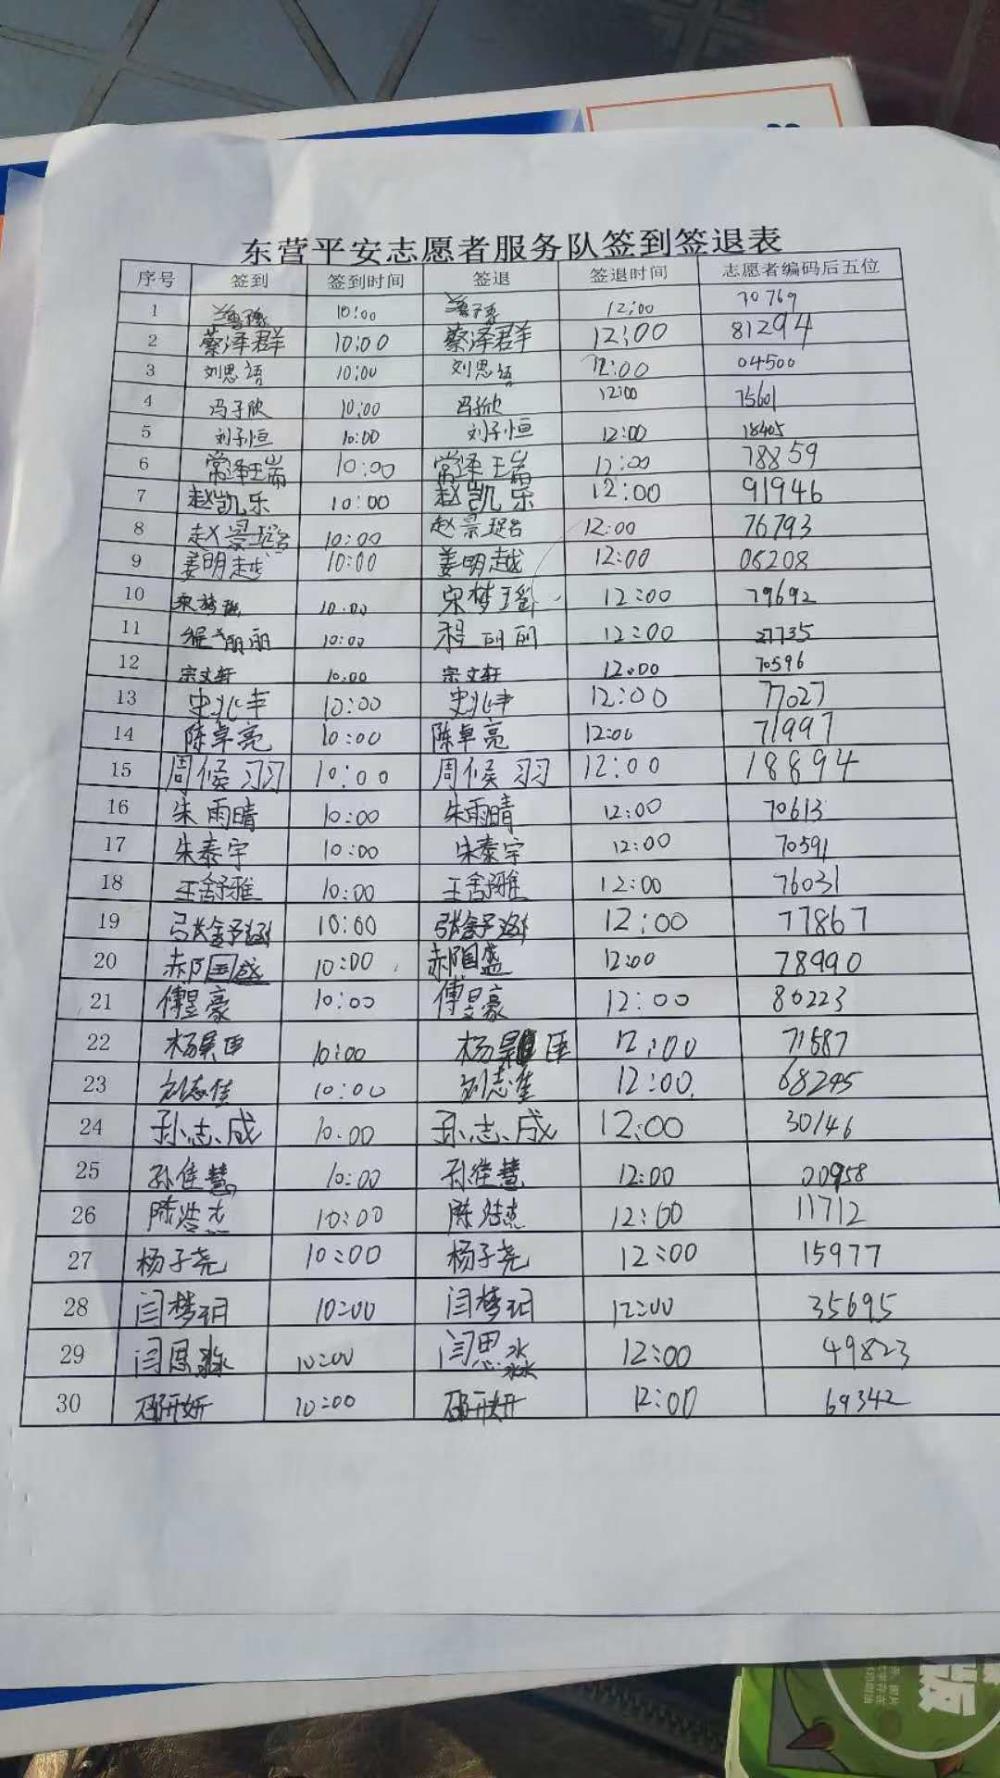 东营平安志愿者服务队签到签退表
序号 签到 签到时间 签退 签退时间 志愿者编码后五位
1 10:00 12:00 70769
2 蔡泽群 10:00 蔡泽群 12:00 81294
3 刘思语 10:00 刘思语 12:00 04500
4 冯子欣 10:00 冯子欣 12:00 75601
5 刘子恒 10:00 刘子恒 12:00 18405
6 常泽瑞 10:00 常泽瑞 12:00 78859
7 赵凯乐 10:00 赵凯乐 12:00 91946
8 赵景琀 10:00 赵景琀 12:00 76793
9 姜明越 10:00 姜明越 12:00 06208
10 宋梦瑶 10:00 宋梦瑶 12:00 79692
11 程丽丽 10:00 程丽丽 12:00 27735
12 宗文轩 10:00 宗文轩 12:00 70596
13 史兆丰 10:00 史兆丰 12:00 77027
14 陈卓亮 10:00 陈卓亮 12:00 71997
15 周候羽 10:00 周候羽 12:00 18894
16 朱雨晴 10:00 朱雨晴 12:00 70613
17 朱泰宇 10:00 朱泰宇 12:00 70591
18 王舒雅 10:00 王舒雅 12:00 76031
19 张舒涵 10:00 张舒涵 12:00 77867
20 郝国盛 10:00 郝国盛 12:00 78990
21 傅昱豪 10:00 傅昱豪 12:00 80223
22 杨昊臣 10:00 杨昊臣 12:00 71587
23 刘志佳 10:00 刘志佳 12:00 68295
24 孙志成 10:00 孙志成 12:00 30146
25 孙佳慧 10:00 孙佳慧 12:00 20958
26 陈浩杰 10:00 陈浩杰 12:00 11712
27 杨子尧 10:00 杨子尧 12:00 15977
28 闫梦玥 10:00 闫梦玥 12:00 35695
29 闫思淼 10:00 闫思淼 12:00 49823
30 邵研妍 10:00 邵研妍 12:00 69342
版